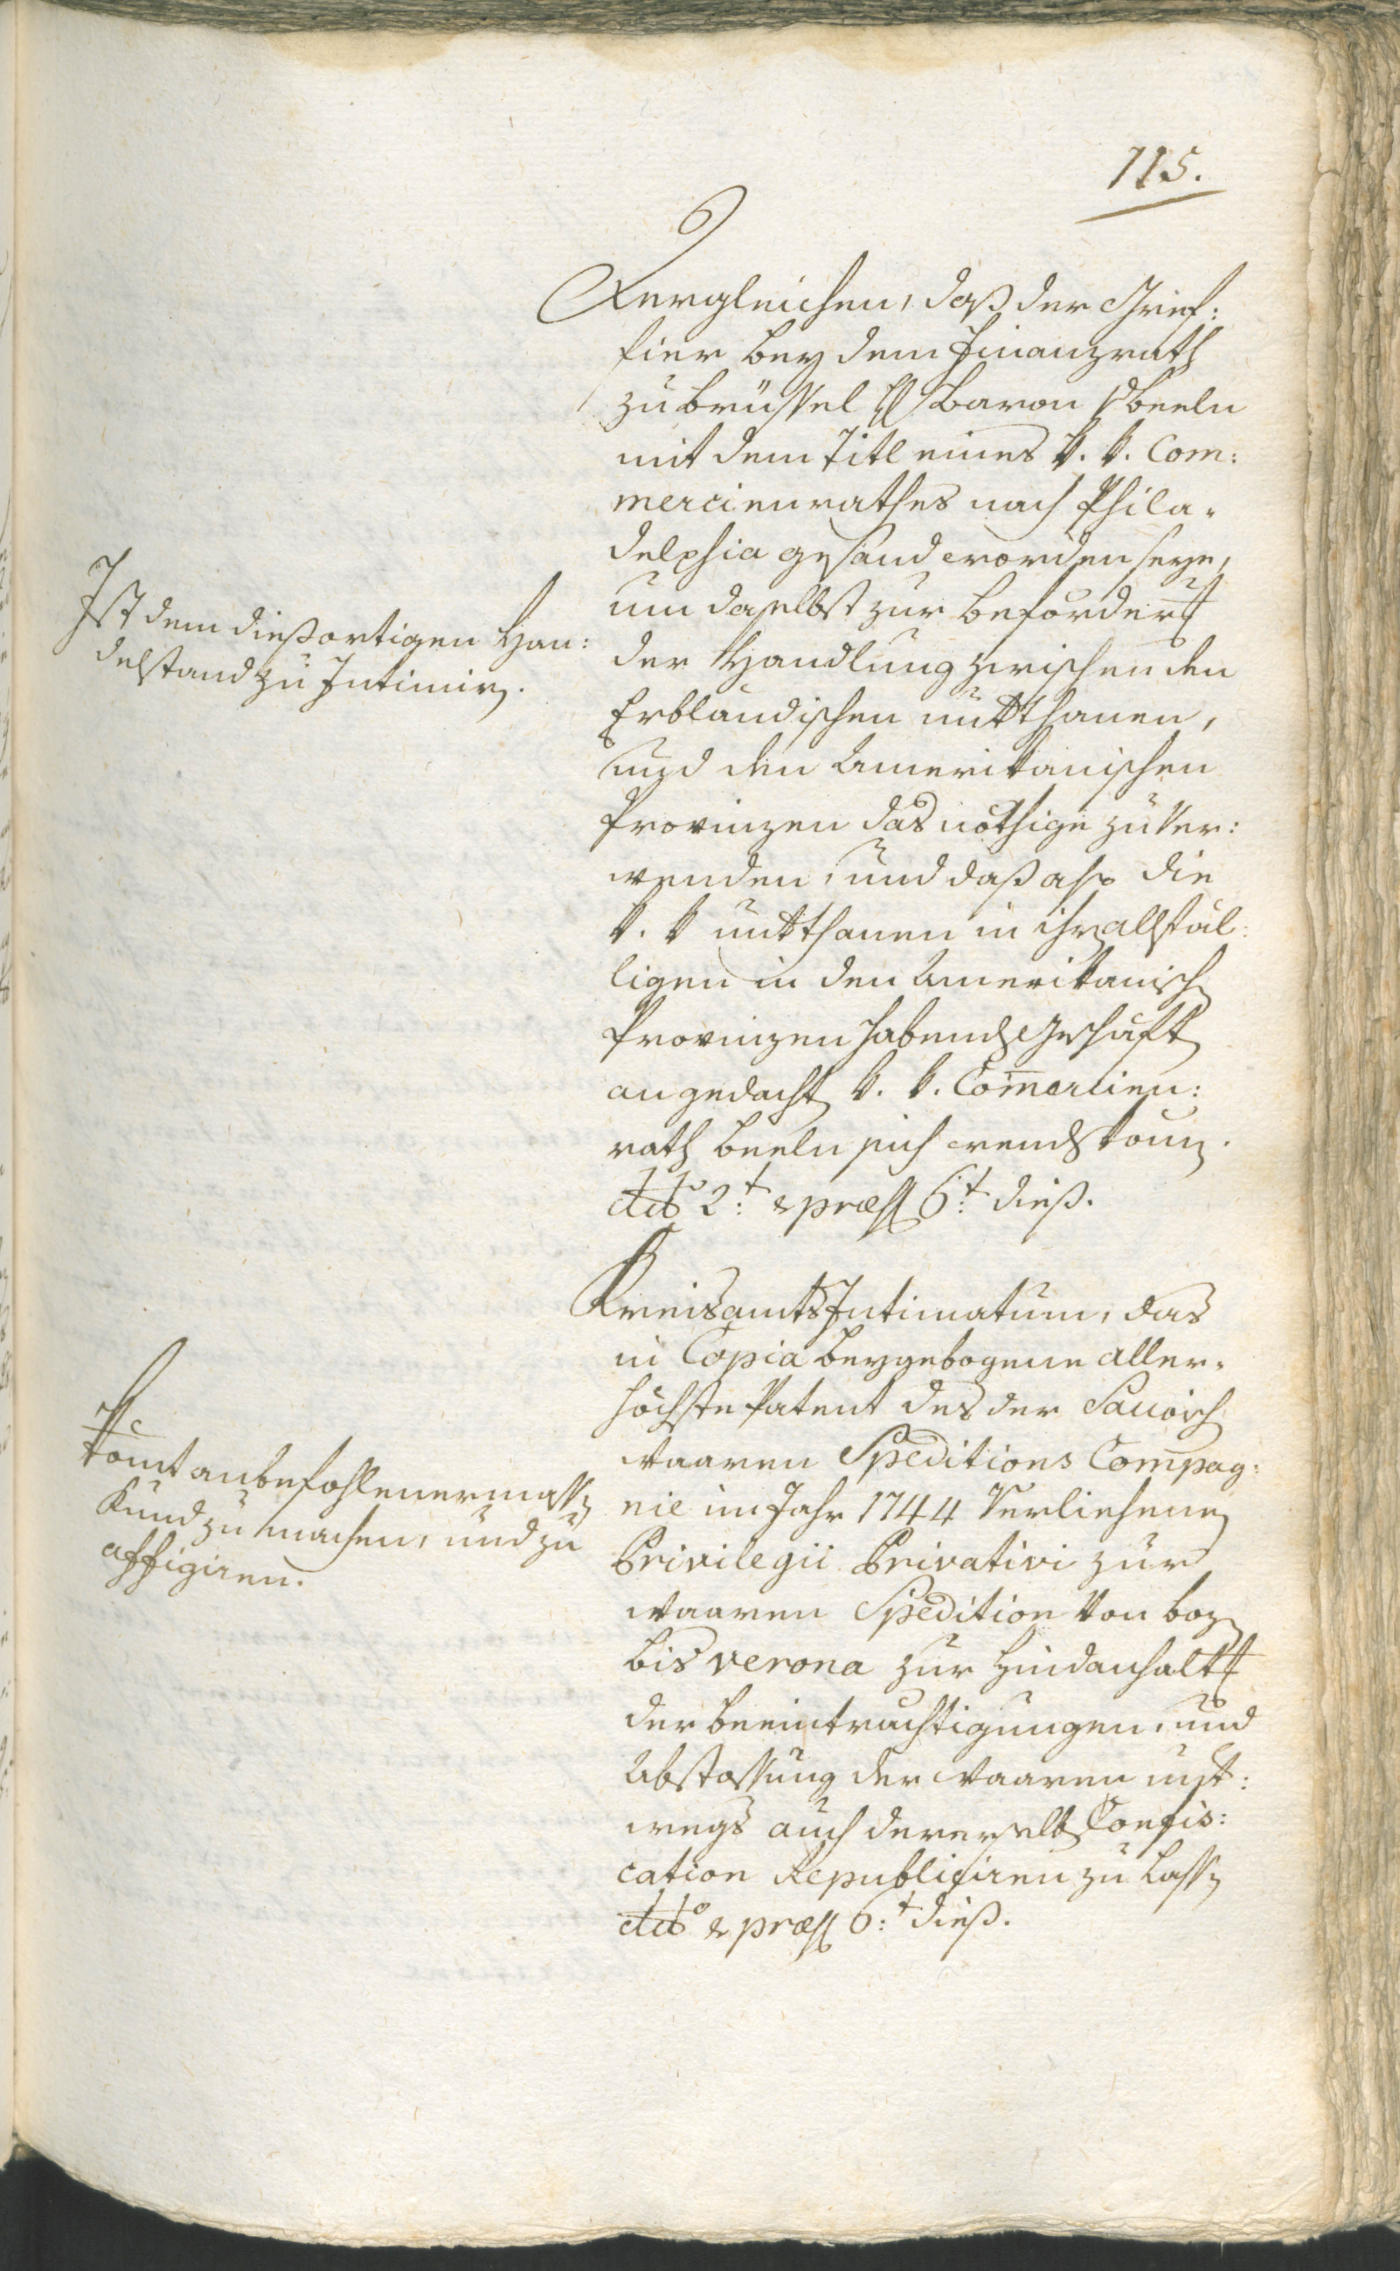 115.
Dergleichen, daß der Gref:
fier bey dem Finanzrath
zu Brüssel H Baron v Beeln
mit dem Titl eines k. k. Com:
mercienrathes nach Phila-
delphia gesand worden seye,
um daselbst zur Beförderung
der Handlung zwischen den
Erbländischen untthanen,
und den Amerikanischen
Provinzen das nöthige zu ver:
wenden, und daß also die
k. k untthanen in ihren allfäl:
ligen in den Amerikanischen
Provinzen habenden Geschäften
an gedachten k. k. Comercien:
rath Beeln sich wenden können.
dto 2:t & præs 6:t dieß.
Ist dem dießortigen Han:
delstand zu Intimiren.
Kreisamts Intimatum, das
in Copia beygebogene Aller-
höchste Patent des der Sacoisch
waaren Speditions Compag:
nie im Jahr 1744 Verliehenen
Privilegii Privativi zur
waaren Spedition von Bozen
bis Verona zur Hindanhaltung
der Beeinträchtigungen, und
Abstossung der waaren unt:
wegs auch derenselben Confis:
cation Republiciren zu lassen
dto & præs 6:t dieß.
Kömt anbefohlenermassen
Kund zu machen, und zu
affigiren.